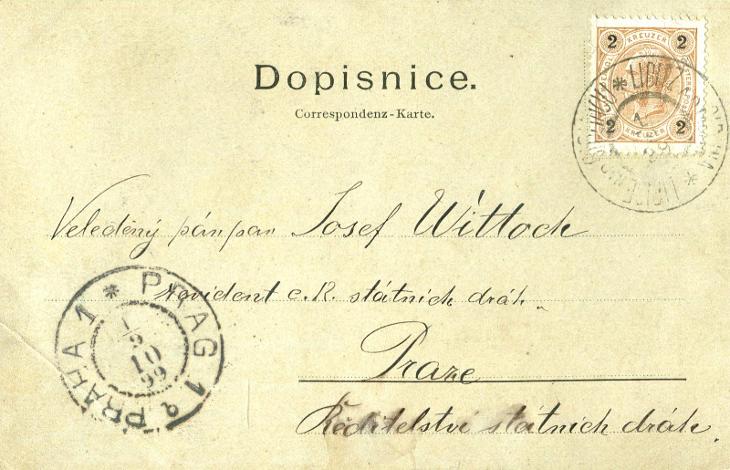 Dopisnice.
Correspondenz-Karte.
2 KREUZER 2
2 KREUZER 2
LIBITZ
Veleděný pán pan Josef Wittoch
revident c. R. státních dráh.
Praze
Ředitelství státních dráh.
PRAG 1 * PRAHA 1
10
99